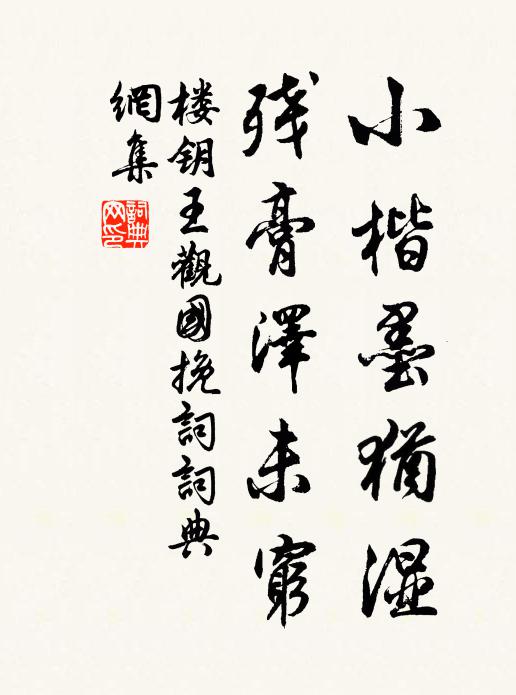 小楷墨猶湿
残膏澤未窮
楼钥王觀國挽詞詞典
網集
詞典网印